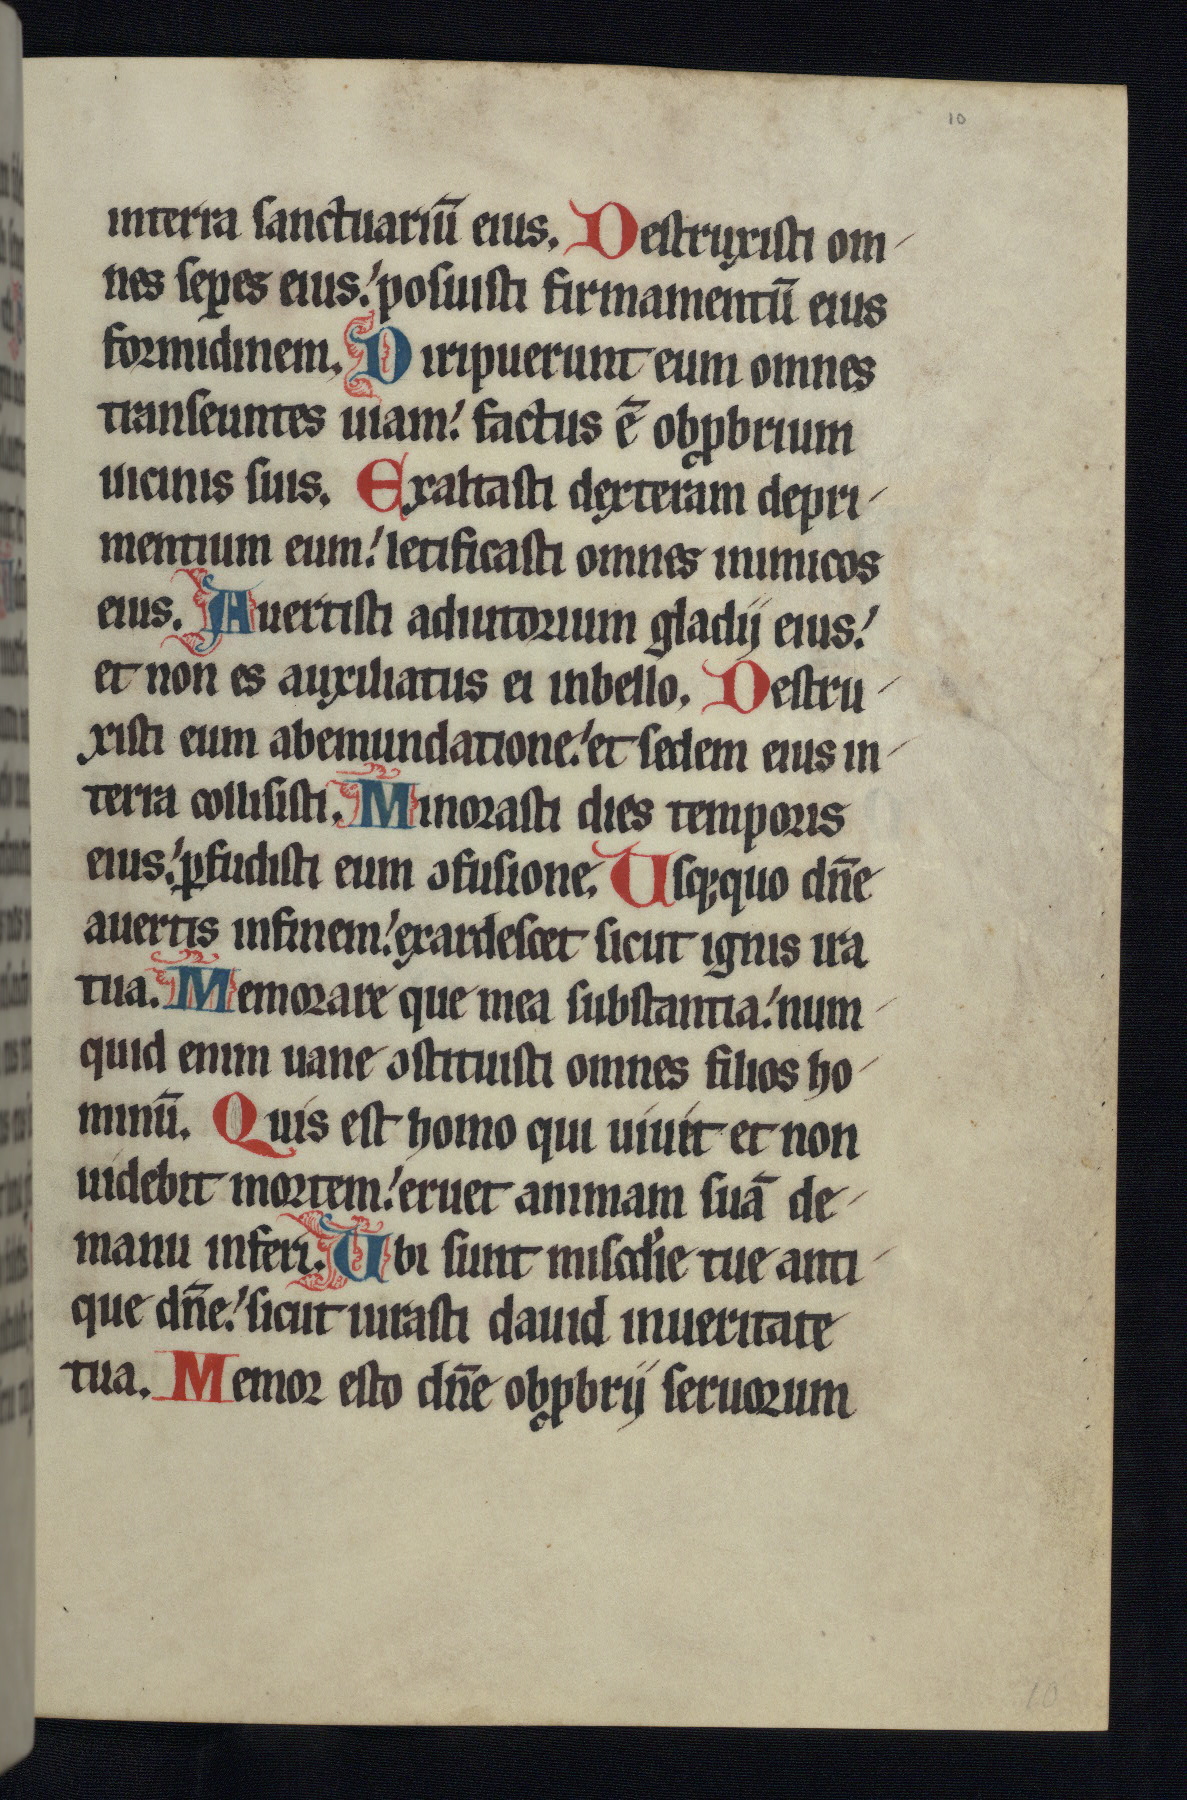 10
interra sanctuariū eius. Destruxisti om-
nes sepes eius: posuisti firmamentū eius
formidinem. Diripuerunt eum omnes
transeuntes uiam: factus ē obꝓbrium
uicinis suis. Exaltasti dexteram depri-
mentium eum: letificasti omnes inimicos
eius. Auertisti adiutorium gladij eius:
et non es auxiliatus ei inbello. Destru-
xisti eum abemundatione: et sedem eius in-
terra collisisti. Minorasti dies temporis
eius: ꝑfudisti eum ɔfusione. Usqꝫquo dn̄e
auertis infinem: exardescet sicut ignis ira
tua. Memorare que mea substantia: num-
quid enim uane ɔstituisti omnes filios ho-
minū. Quis est homo qui uiuit et non
uidebit mortem: eruet animam suā de-
manu inferi. Ubi sunt misc̄die tue anti-
que dn̄e: sicut iurasti dauid inueritate
tua. Memor esto dn̄e obꝓbrij seruorum
10